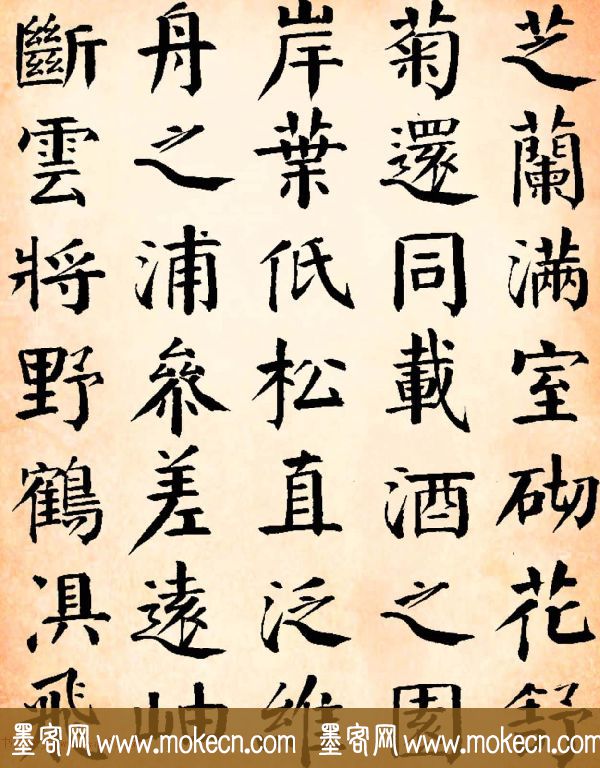 芝蘭满室砌花舒
菊還同載酒之園
岸葉低松直泛維
舟之浦參差遠岫
斷雲將野鶴俱飛
墨客网 www.mokecn.com 墨客网 www.mokecn.com